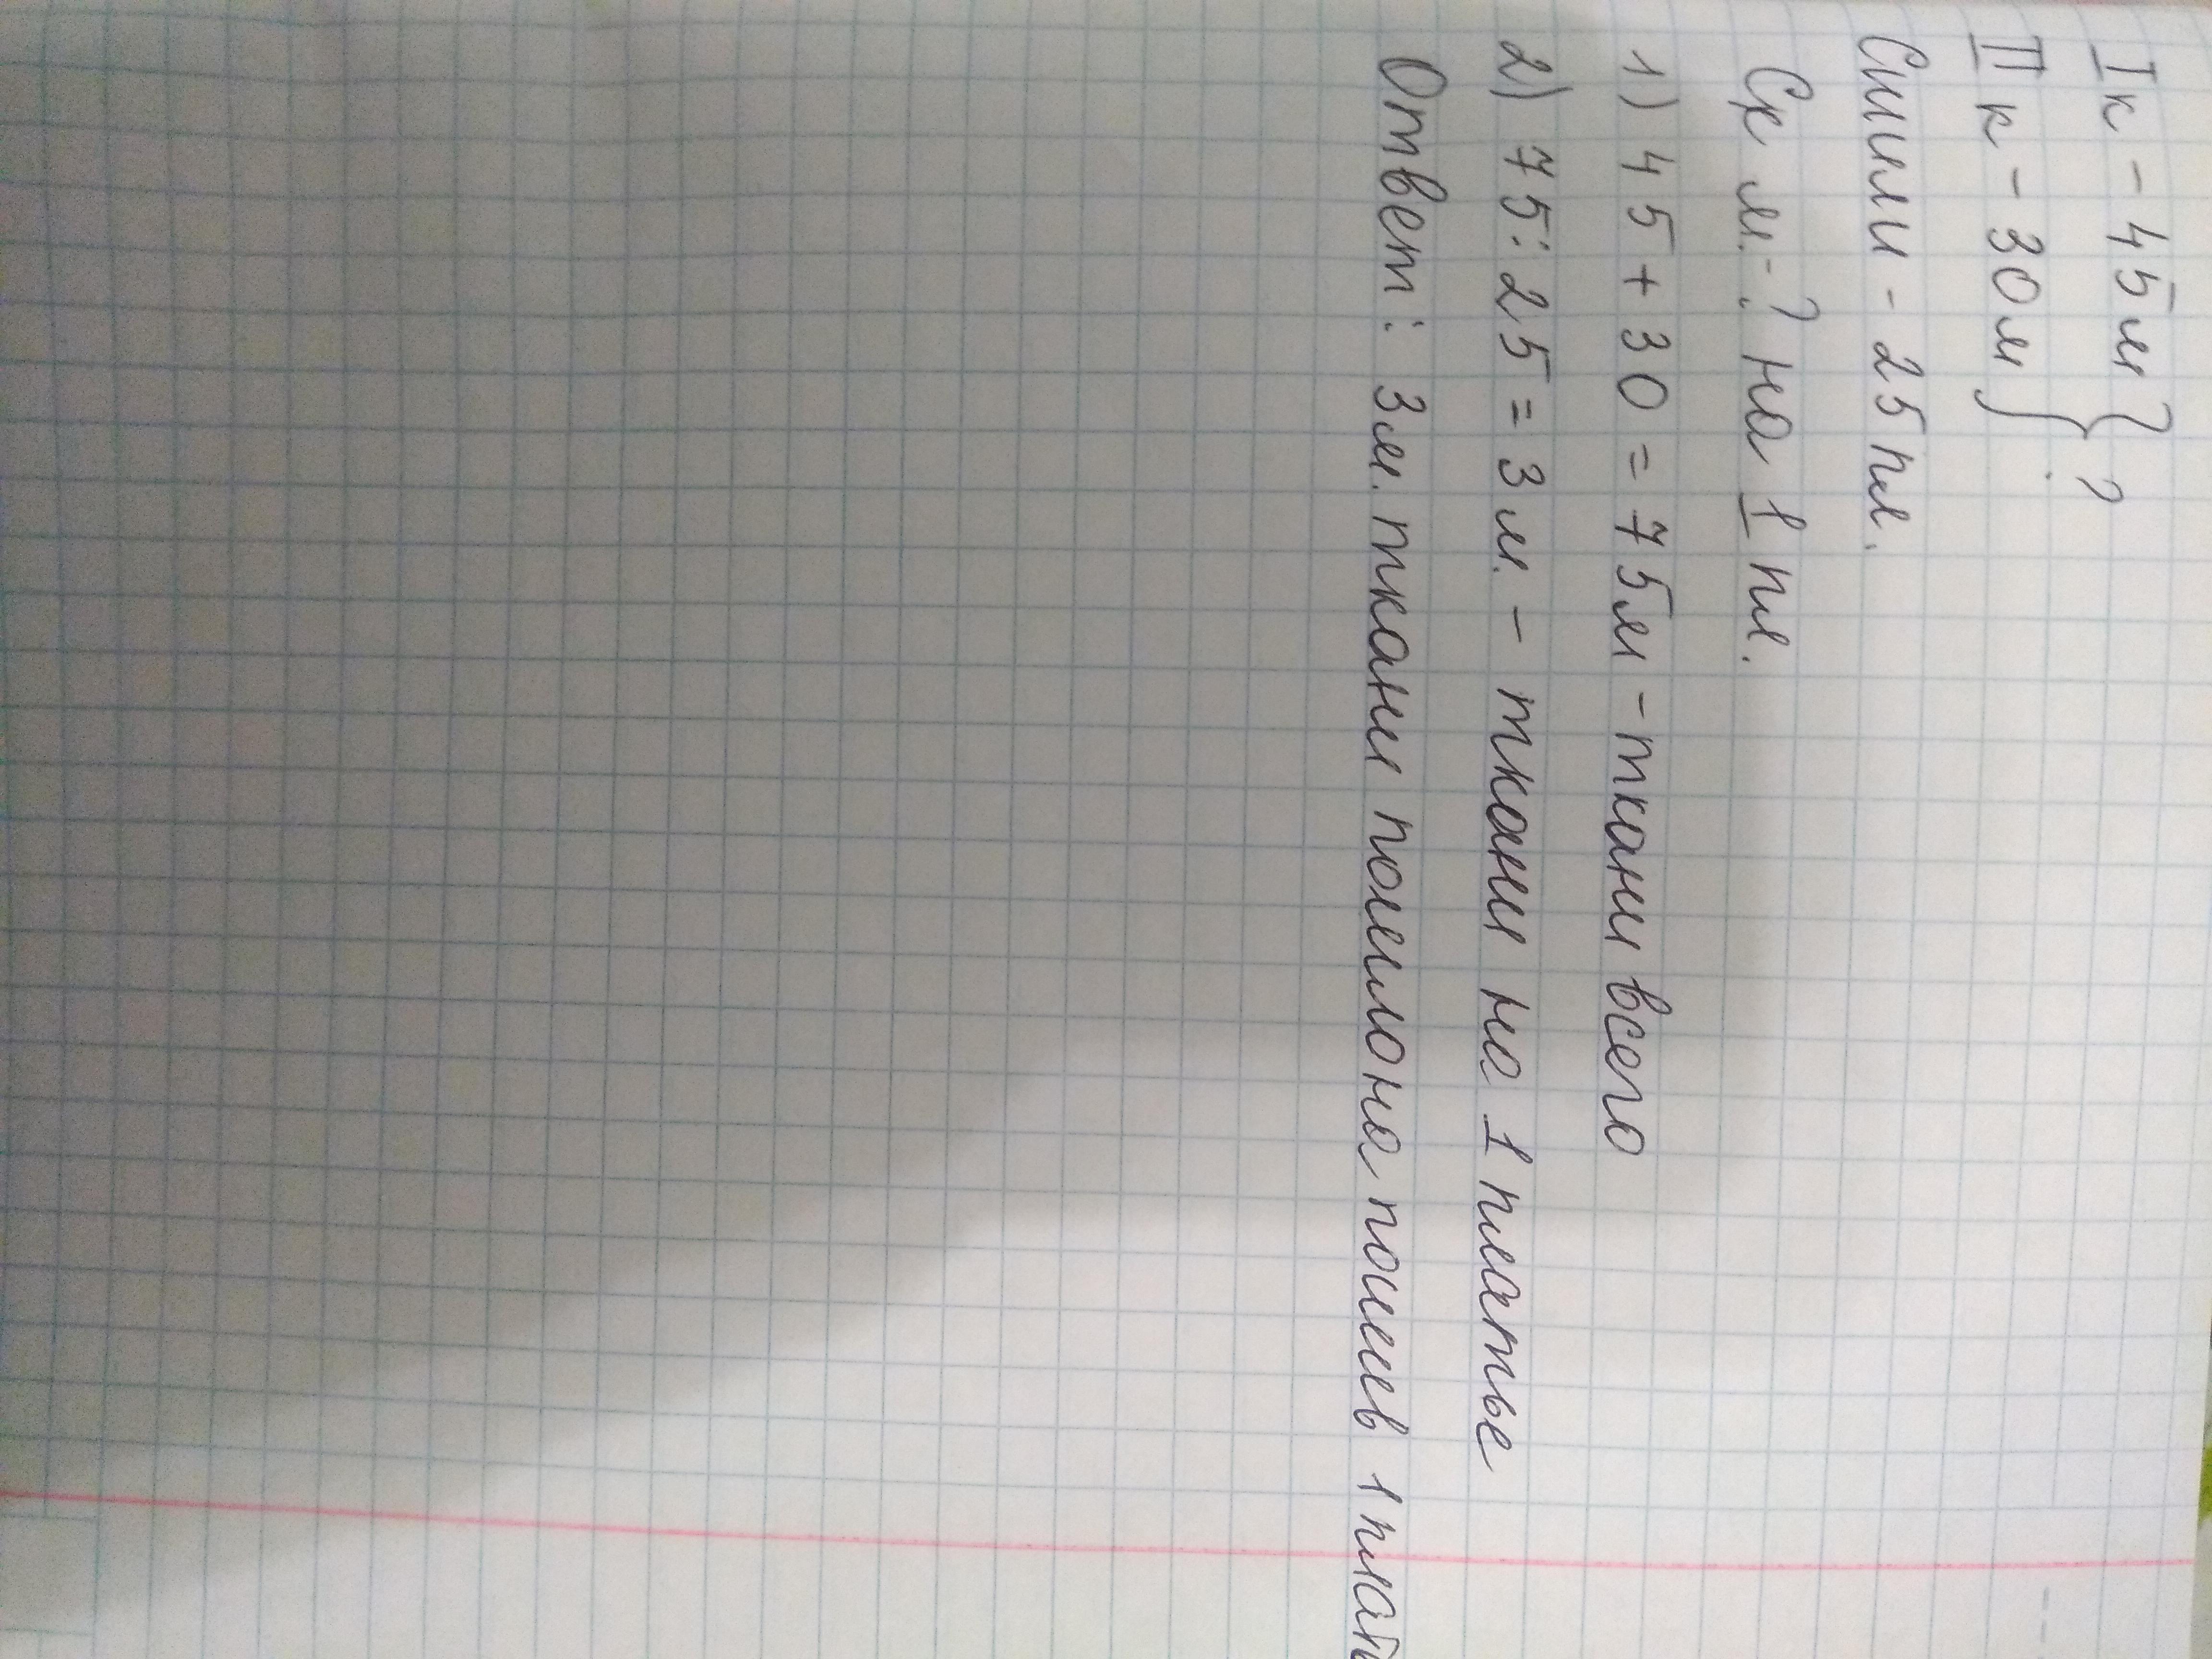 I к - 45м } ?
II к - 30м
Сшили - 25 пл.
Ск м. - ? на 1 пл.
1) 45 + 30 = 75м - ткани всего
2) 75 : 25 = 3 м. - ткани на 1 платье
Ответ: 3м. ткани пошло на пошив 1 плать